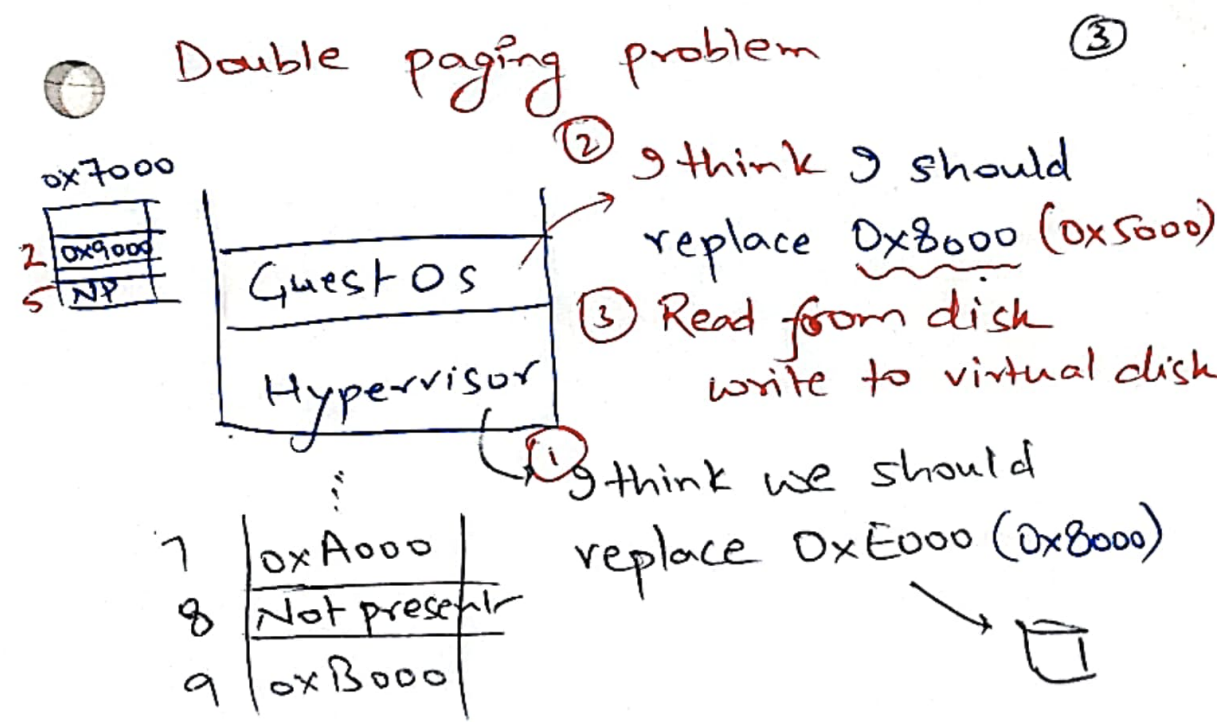 Double paging problem
③
0x7000
2 0x9000
5 NP
Guest OS
Hypervisor
② I think I should
replace 0x8000 (0x5000)
③ Read from disk
write to virtual disk
① I think we should
replace 0xE000 (0x8000)
7 0xA000
8 Not present
9 0xB000